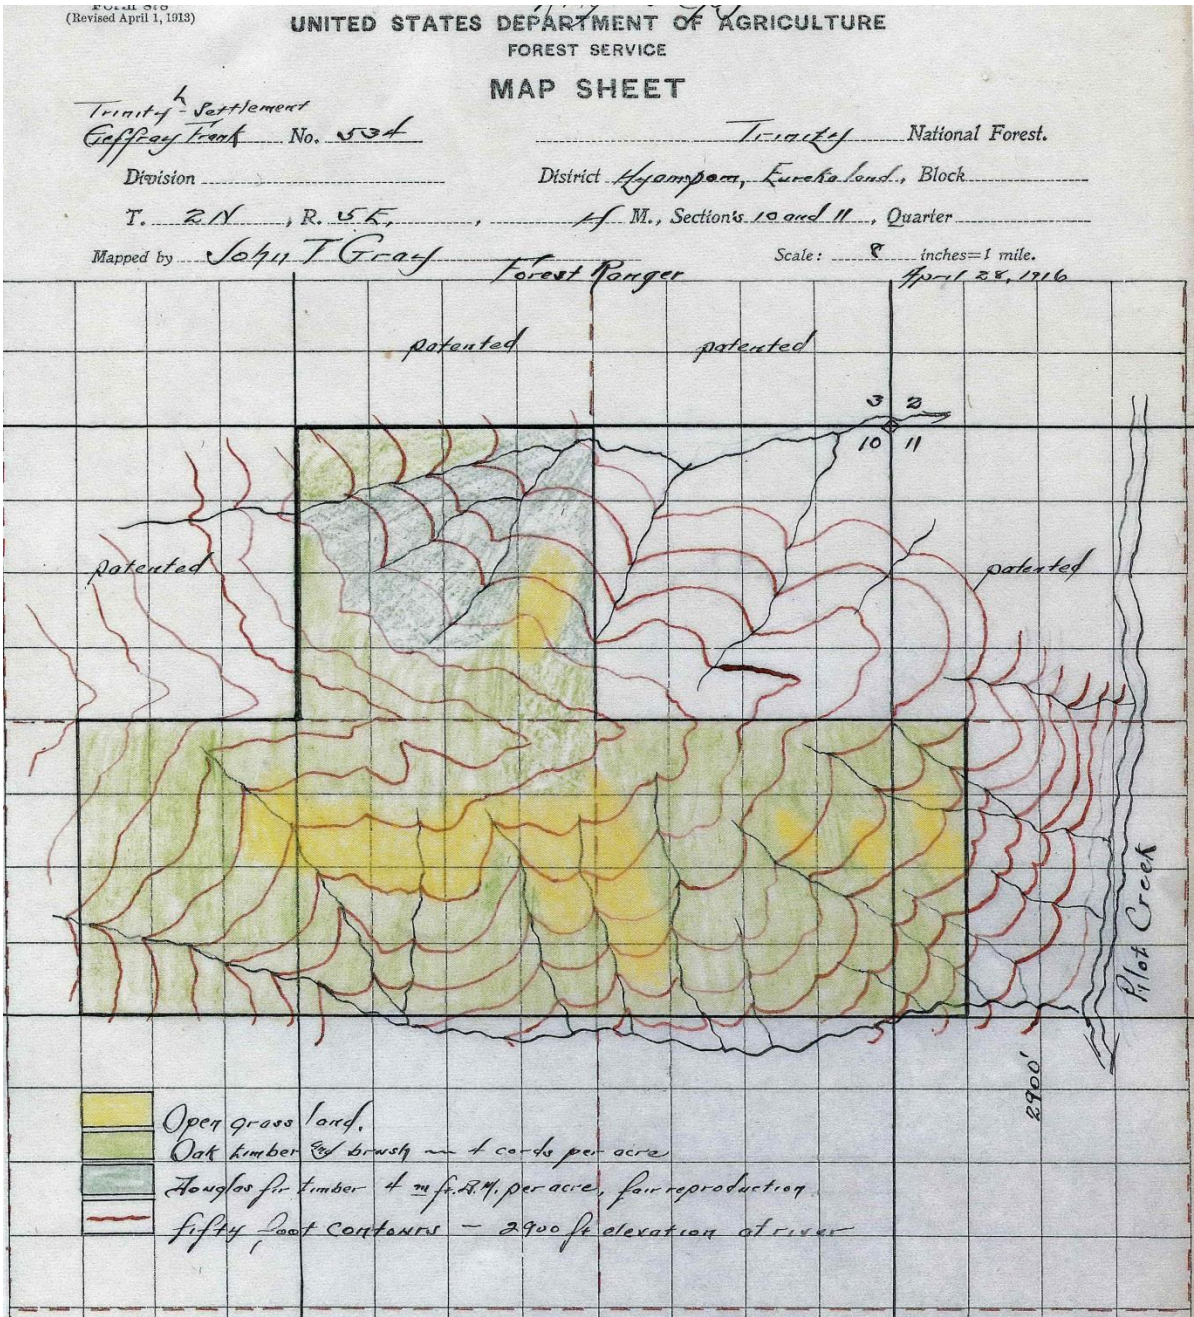 (Revised April 1, 1913)
UNITED STATES DEPARTMENT OF AGRICULTURE
FOREST SERVICE
MAP SHEET
Trinity - Settlement
Geffray Frank No. 534 Trinity National Forest.
Division District Hyampom, Eureka land, Block
T. 2N, R. 5E, H M., Section's 10 and 11, Quarter
Mapped by John T Gray Scale: 8 inches=1 mile.
Forest Ranger April 28, 1916
patented patented
3 2
10 11
patented patented
Pilot Creek
2900'
Open grass land.
Oak timber and brush — 4 cords per acre
Douglas fir timber 4 m ft. B.M. per acre, fair reproduction
fifty foot contours - 2900 ft elevation at river